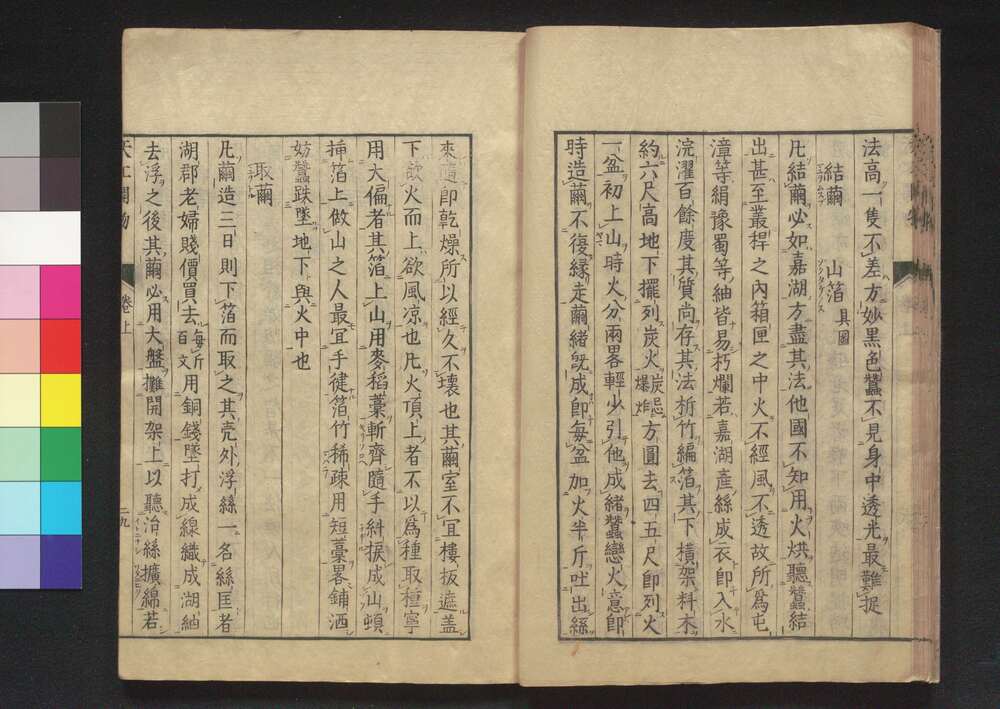 法高一隻不差方妙黑色蠶不見身中透光最難捉
結繭 山箔 具圖
凡結繭必如嘉湖方盡其法他國不知用火烘聽蠶結
出甚至叢稈之內箱匣之中火不經風不透故所爲屯
漳等絹豫蜀等紬皆易朽爛若嘉湖產絲成衣即入水
浣濯百餘度其質尚存其法析竹編箔其下橫架料木
約六尺高地下擺列炭火炭忌爆炸方圓去四五尺即列火
一盆初上山時火分兩畧輕少引他成緒蠶戀火意即
時造繭不復緣走繭緒既成即每盆加火半斤吐出絲
來隨即乾燥所以經久不壞也其繭室不宜樓板遮盖
下欲火而上欲風凉也凡火頂上者不以爲種取種寧
用大偏者其箔上山用麥稻藁斬齊隨手糾捩成山頓
挿箔上做山之人最宜手徤箔竹稀疎用短藁畧鋪洒
妨蠶跌墜地下與火中也
取繭
凡繭造三日則下箔而取之其壳外浮絲一名絲匡者
湖郡老婦賤價買去每斤百文用銅錢墜打成線織成湖紬
去浮之後其繭必用大盤攤開架上以聽治絲擴綿若
天工開物 卷上 二九